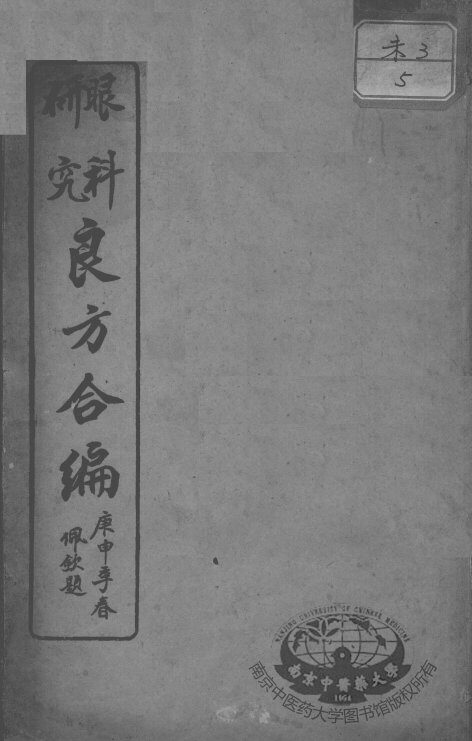 眼科
研究
良方合編
庚申季春
佩欽題
未3
5
NANJING UNIVERSITY OF CHINESE MEDICINE
南京中醫藥大學
1954
南京中医药大学图书馆版权所有